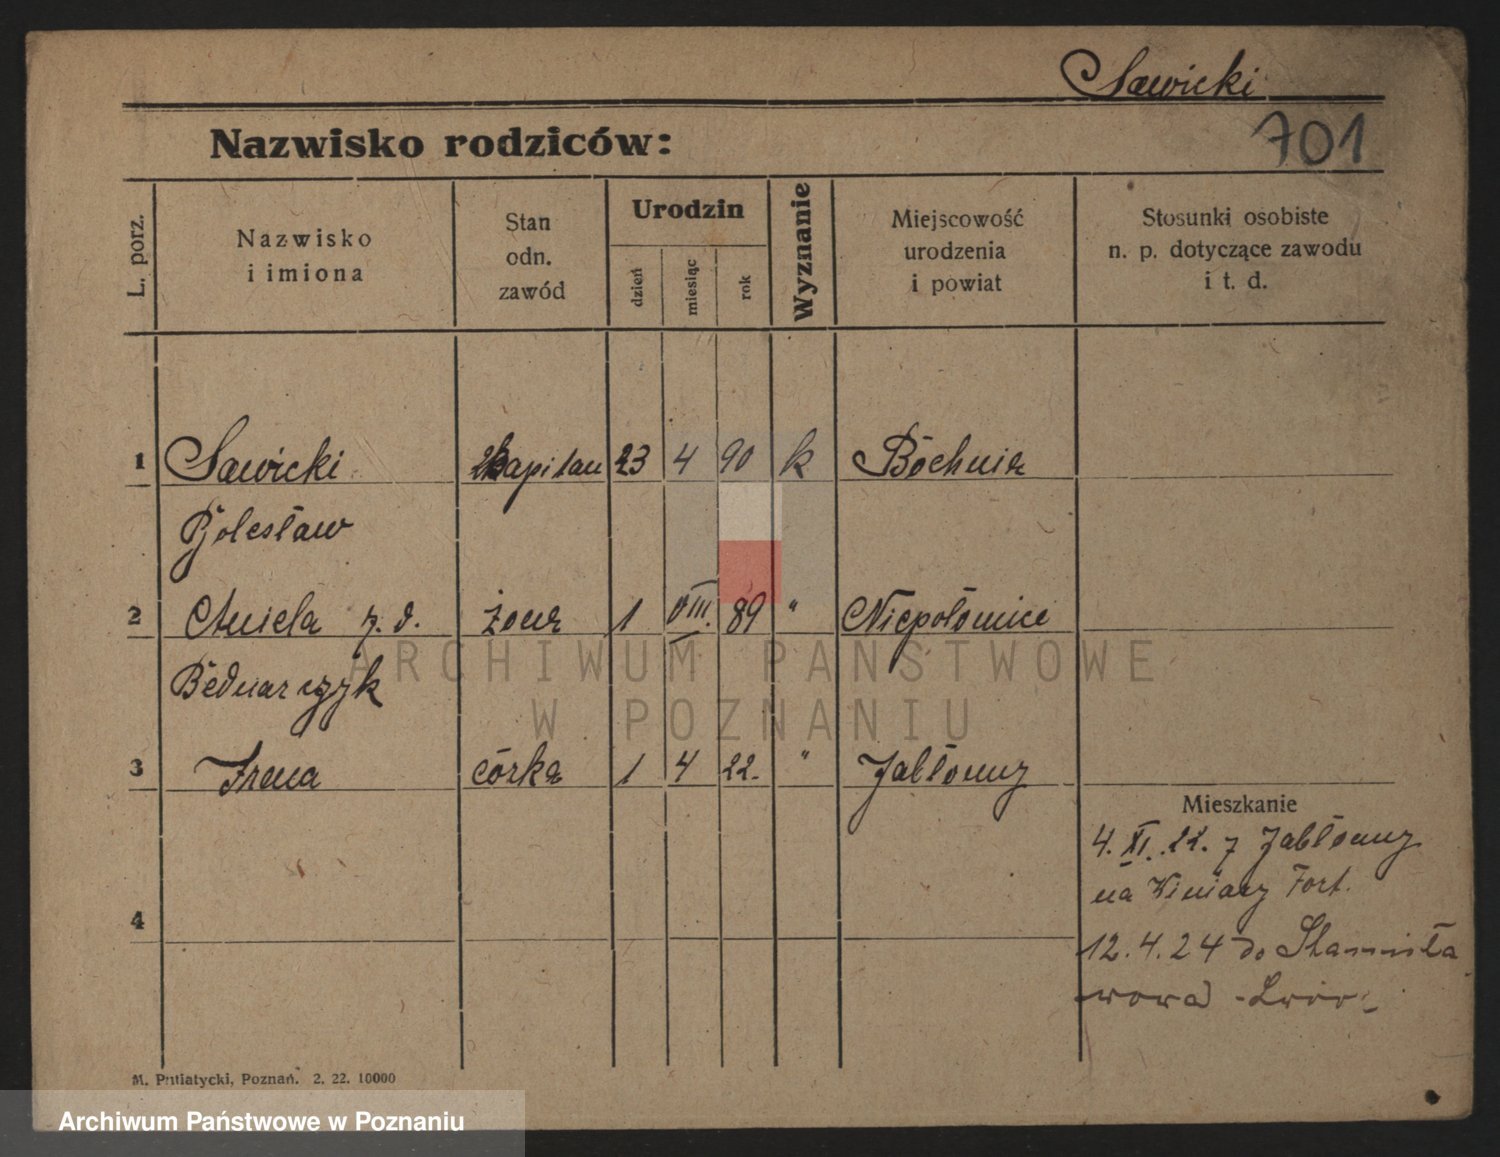 Sawicki
Nazwisko rodziców:
701
L. porz.
Nazwisko
i imiona
Stan
odn.
zawód
Urodzin
dzień
miesiąc
rok
Wyznanie
Miejscowość
urodzenia
i powiat
Stosunki osobiste
n. p. dotyczące zawodu
i t. d.
1 Sawicki kapitan 23 4 90 k Bochnia
Bolesław
2 Aniela z. d. żona 1 VIII. 89 " Niepołomice
Bednarczyk
3 Irena córka 1 4 22. " Jabłonny
Mieszkanie
4. XI. 22. z Jabłonny
na Winiary Fort.
4
12.4.24 do Stanisła
wowa -
M. Putiatycki, Poznań. 2. 22. 10000
ARCHIWUM PAŃSTWOWE
W POZNANIU
Archiwum Państwowe w Poznaniu